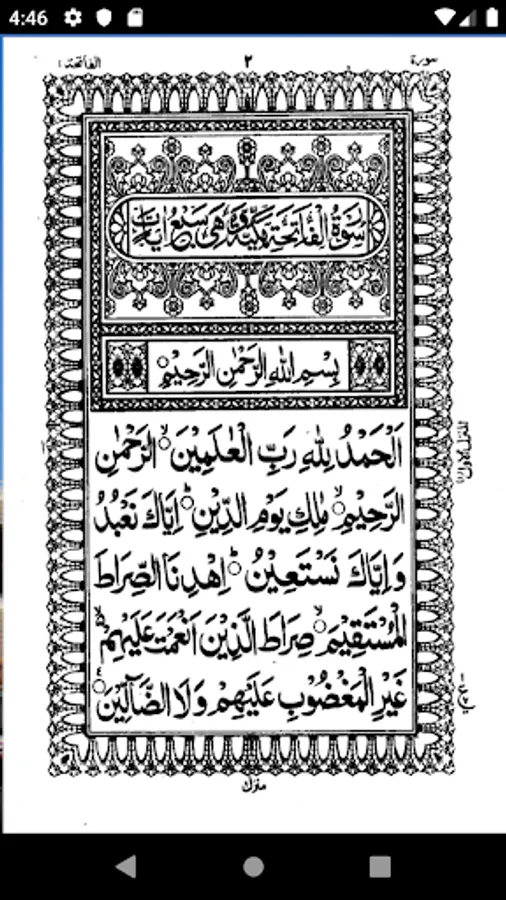 4:46
سورة ٢ الفاتحة ١
سُوْرَةُ الْفَاتِحَةِ مَكِّيَّةٌ وَّهِيَ سَبْعُ اٰيَاتٍ
بِسْمِ اللّٰهِ الرَّحْمٰنِ الرَّحِيْمِ
اَلْحَمْدُ لِلّٰهِ رَبِّ الْعٰلَمِيْنَ ۙ الرَّحْمٰنِ
الرَّحِيْمِ ۙ مٰلِكِ يَوْمِ الدِّيْنِ ؕ اِيَّاكَ نَعْبُدُ
وَ اِيَّاكَ نَسْتَعِيْنُ ؕ اِهْدِنَا الصِّرَاطَ
الْمُسْتَقِيْمَ ۙ صِرَاطَ الَّذِيْنَ اَنْعَمْتَ عَلَيْهِمْ ۙ
غَيْرِ الْمَغْضُوْبِ عَلَيْهِمْ وَلَا الضَّآلِّيْنَ
منزل